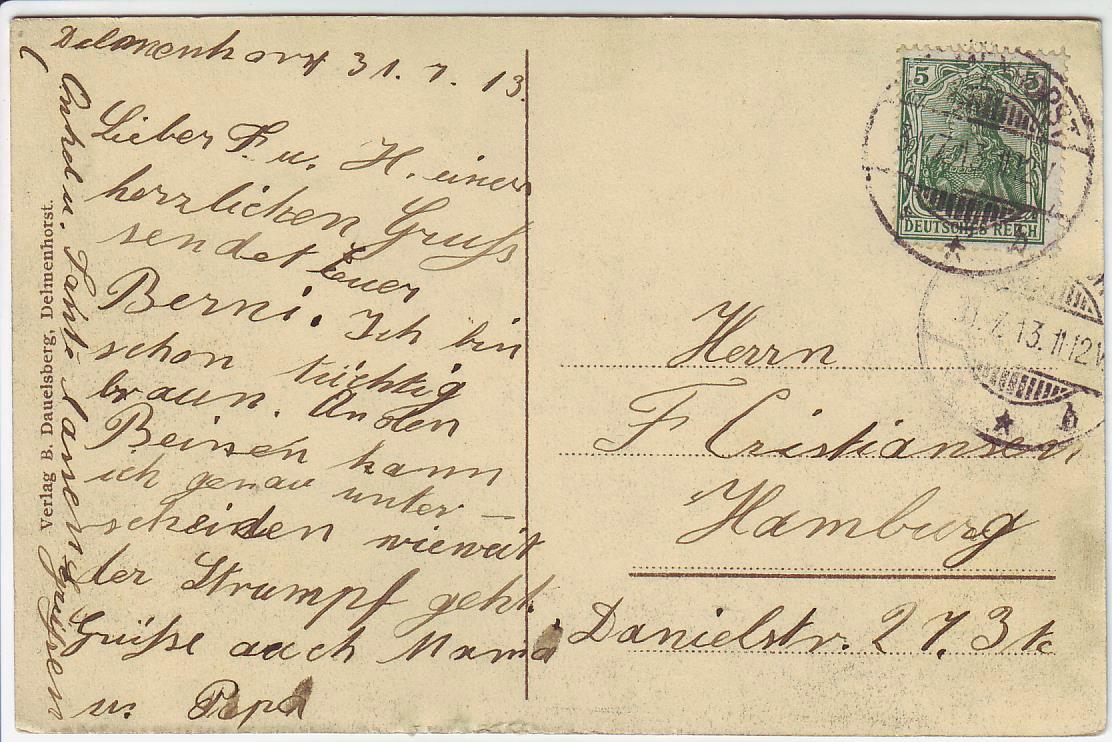 Delmenhorst 31. 7. 13.
Lieber F. u. H. einen
herzlichen Gruss
sendet Euer
Berni. Ich bin
schon tüchtig
braun. An den
Beinen kann
ich genau unter-
scheiden wieweit
der Strumpf geht.
Grüsse auch Mama
u. Papa
Onkel u. Tante lassen grüssen
Verlag B. Dauelsberg, Delmenhorst.
5 5
DEUTSCHES REICH
31.7.13.11-12V
* b
31.7.13.11-12V
* b
Herrn
F Cristiansen
Hamburg
Danielstr. 27. 3 te